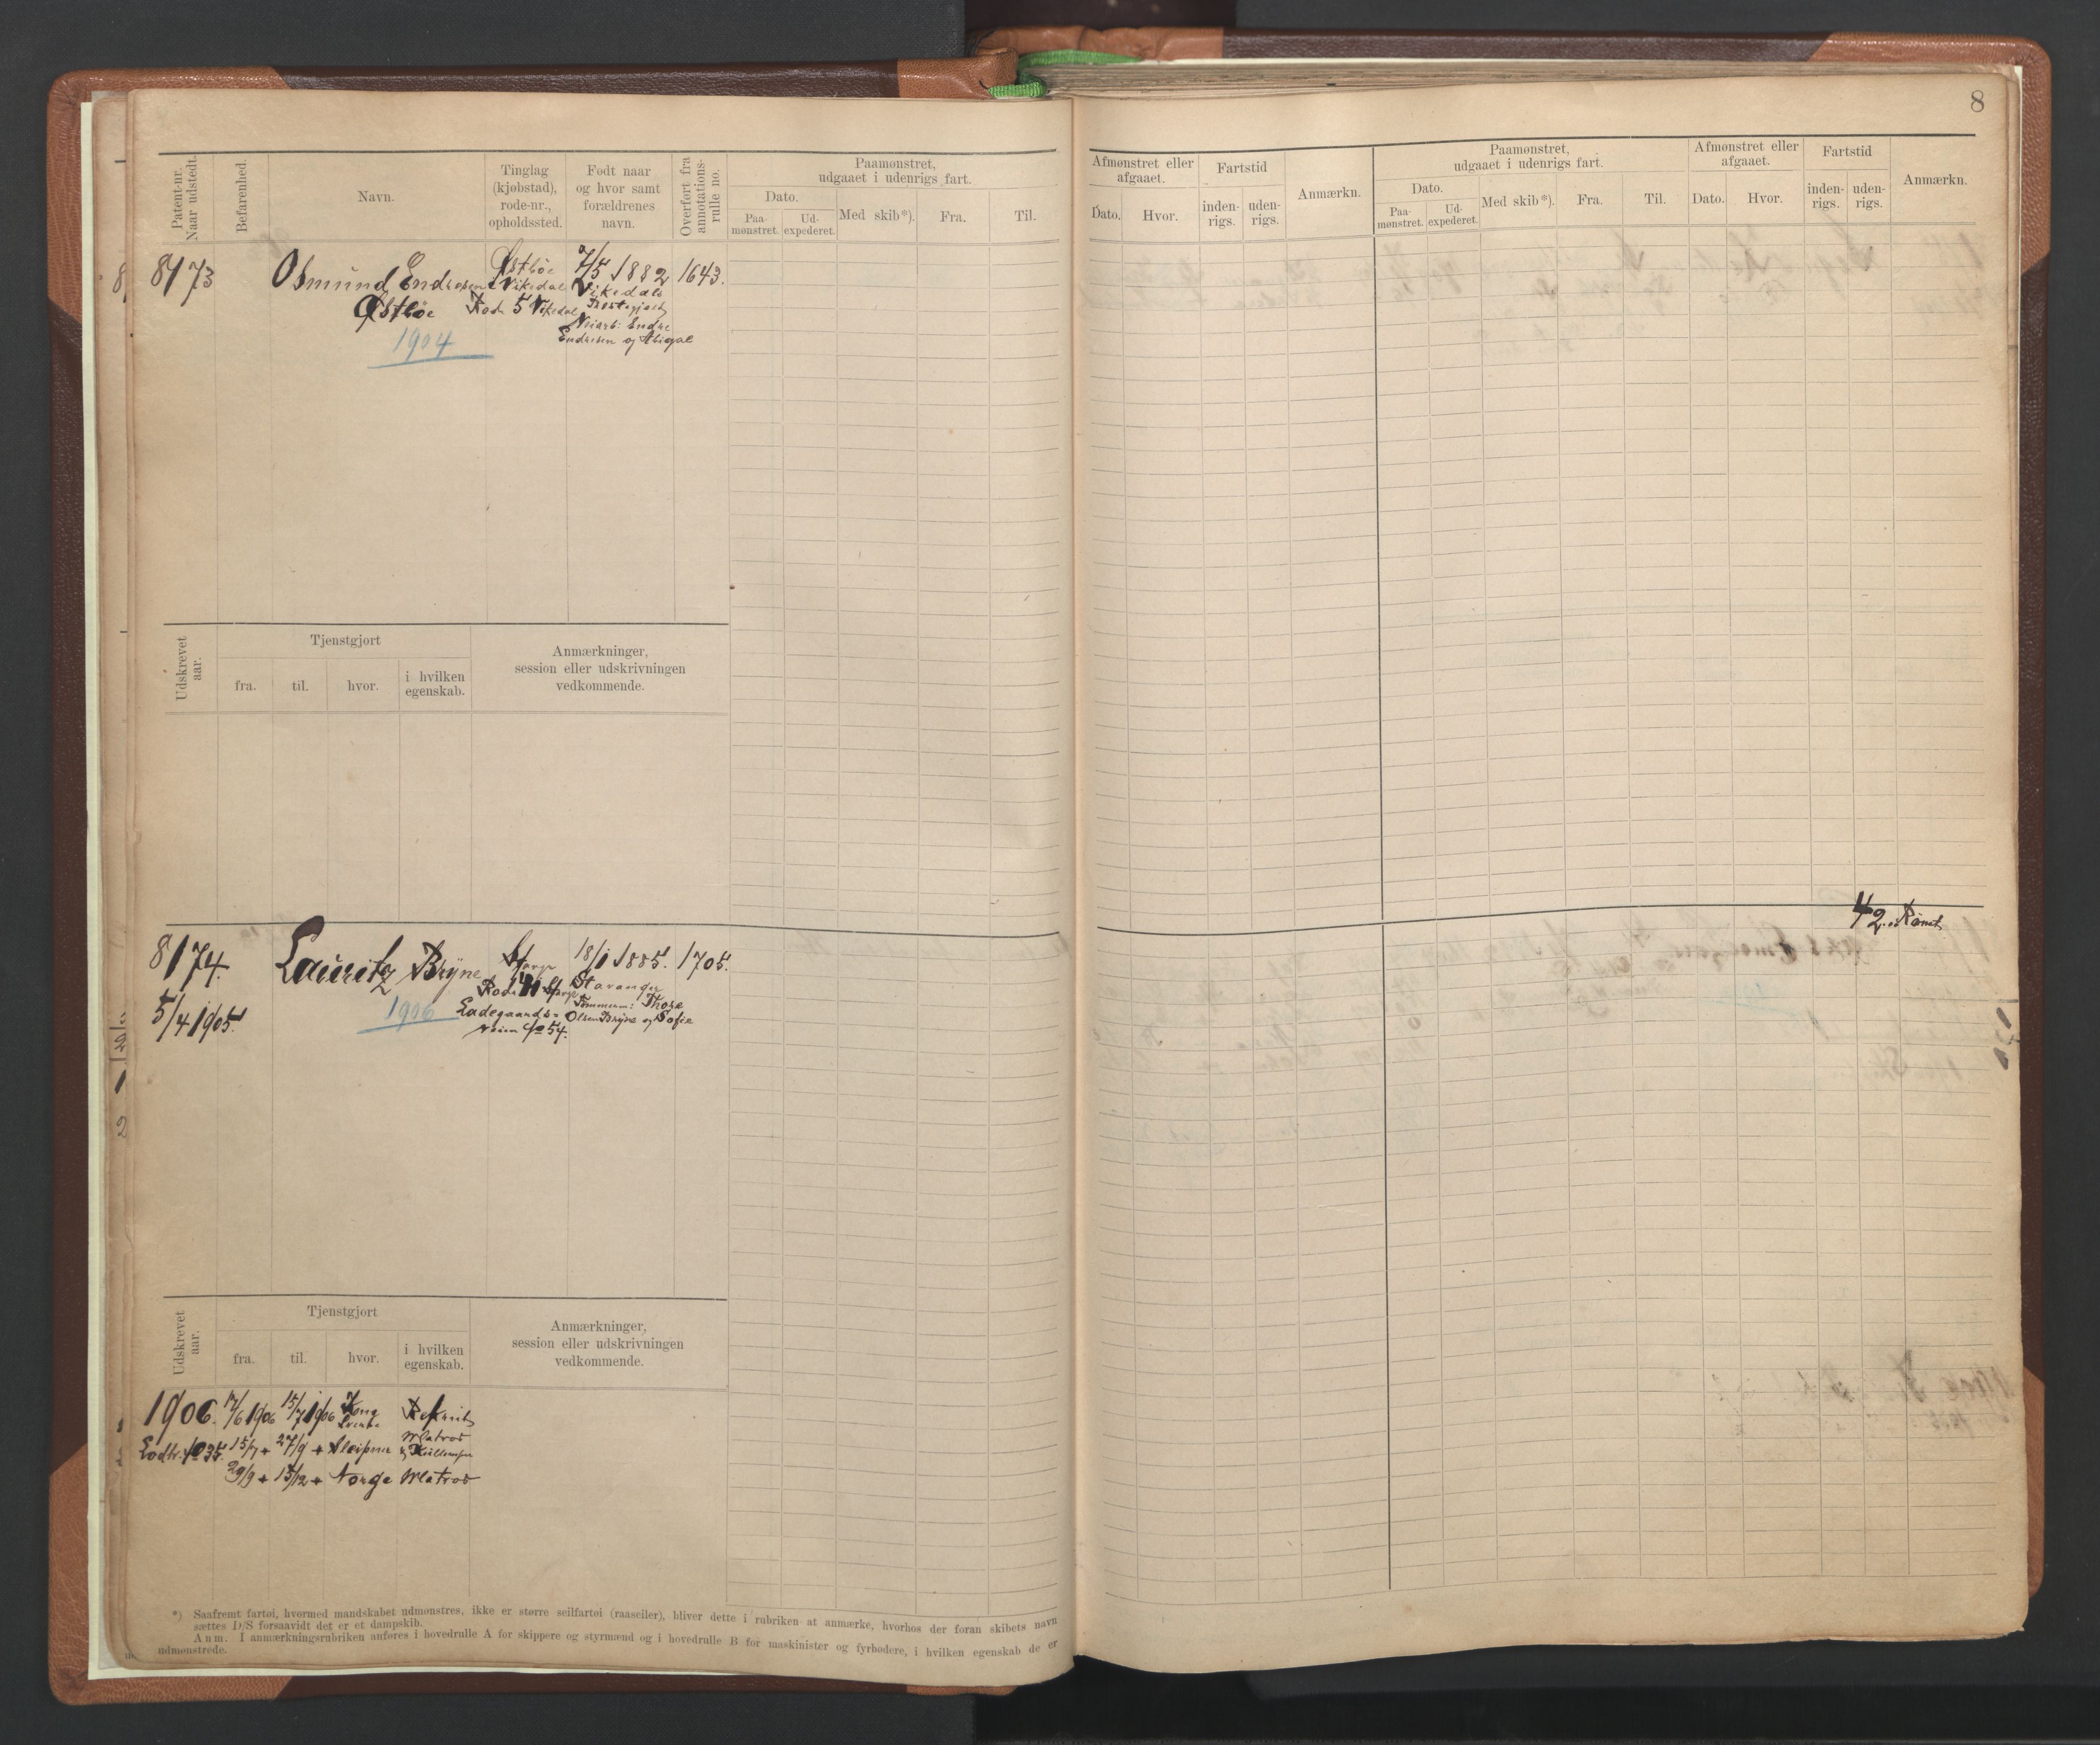 8
Patent-nr. Naar udstedt.
Befarenhed.
Navn.
Tinglag (kjøbstad), rode-nr., opholdssted.
Født naar og hvor samt forældrenes navn.
Overført fra annotations-rulle no.
Paamønstret, udgaaet i udenrigs fart.
Dato.
Paa-mønstret.
Ud-expederet.
Med skib*).
Fra.
Til.
Afmønstret eller afgaaet.
Dato.
Hvor.
Fartstid
inden-rigs.
uden-rigs.
Anmærkn.
Paamønstret, udgaaet i udenrigs fart.
Dato.
Paa-mønstret.
Ud-expederet.
Med skib*).
Fra.
Til.
Afmønstret eller afgaaet.
Dato.
Hvor.
Fartstid
inden-rigs.
uden-rigs.
Anmærkn.
8173
Osmund Endresen
Østbøe
1904
Østbøe
Vikedal
Rode 5 Vikedal
7/5 1882
Vikedals
Præstegjæld
Endre
Endresen og Abigael
1643.
Udskrevet aar.
Tjenstgjort
fra.
til.
hvor.
i hvilken egenskab.
Anmærkninger, session eller udskrivningen vedkommende.
8174.
5/4 1905.
Lauritz Bryne
1906
Ladegaards-
veien No 54.
18/1 1885.
Stavanger
Tømmerm: Thore
Olsen Bryne og Sofie
1705.
Udskrevet aar.
Tjenstgjort
fra.
til.
hvor.
i hvilken egenskab.
Anmærkninger, session eller udskrivningen vedkommende.
1906. 17/6 1906 15/7 1906 Kong Sverre Rekrut
Lodtr. No 35. 15/7 " 27/9 " Sleipner Matros
29/9 " 15/12 " Norge Matros
*) Saafremt fartøi, hvormed mandskabet udmønstres, ikke er større seilfartøi (raaseiler), bliver dette i rubriken at anmærke, hvorhos der foran skibets navn
sættes D/S forsaavidt det er et dampskib.
Anm. I anmærkningsrubriken anføres i hovedrulle A for skippere og styrmænd og i hovedrulle B for maskinister og fyrbødere, i hvilken egenskab de er
udmønstrede.